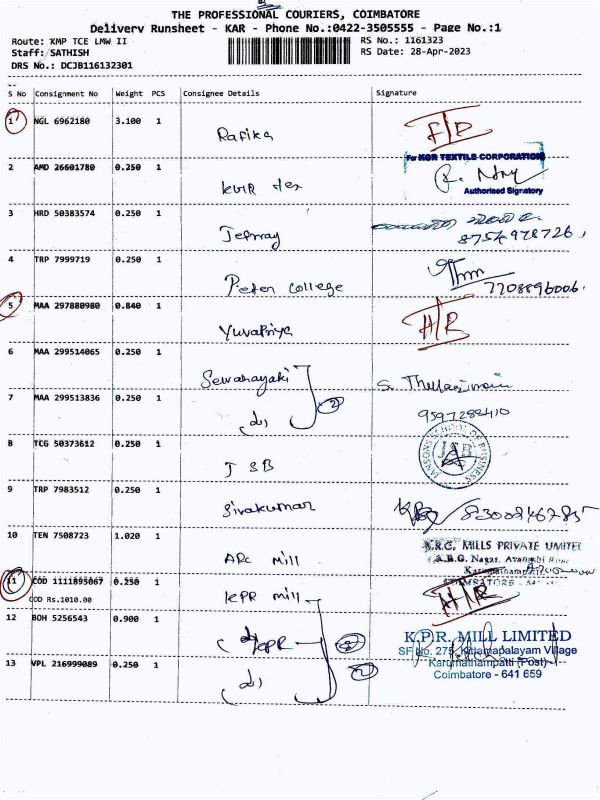 THE PROFESSIONAL COURIERS, COIMBATORE
Delivery Runsheet - KAR - Phone No.:0422-3505555 - Page No.:1
Route: KMP TCE LMW II
RS No.: 1161323
Staff: SATHISH
RS Date: 28-Apr-2023
DRS No.: DCJB116132301
S No Consignment No Weight PCS Consignee Details Signature
1 NGL 6962180 3.100 1 Rafika F/D
2 AMD 26601780 0.250 1 KGR tex
For KGR TEXTILE CORPORATION
Authorised Signatory
3 HRD 50383574 0.250 1
8754978726
4 TRP 7999719 0.250 1 Peter College
7708896006
5 MAA 297880980 0.840 1 Yuvapriya H/R
6 MAA 299514065 0.250 1
7 MAA 299513836 0.250 1 2
9597282410
8 TCG 50373612 0.250 1 JSB
JANSONS SCHOOL OF BUSINESS
JSB
9 TRP 7983512 0.250 1 Sivakumar
10 TEN 7508723 1.020 1 ARC mill
MILLS PRIVATE LIMITED
A.B.G. Nagar,
COIMBATORE
11 COD 1111895067 0.250 1 KPR mill H/R
COD Rs.1010.00
12 BOH 5256543 0.900 1 KPR
K.P.R. MILL LIMITED
SF No. 275, Kittampalayam Village
Karumathampatti (Post)
Coimbatore - 641 659
13 VPL 216999089 0.250 1